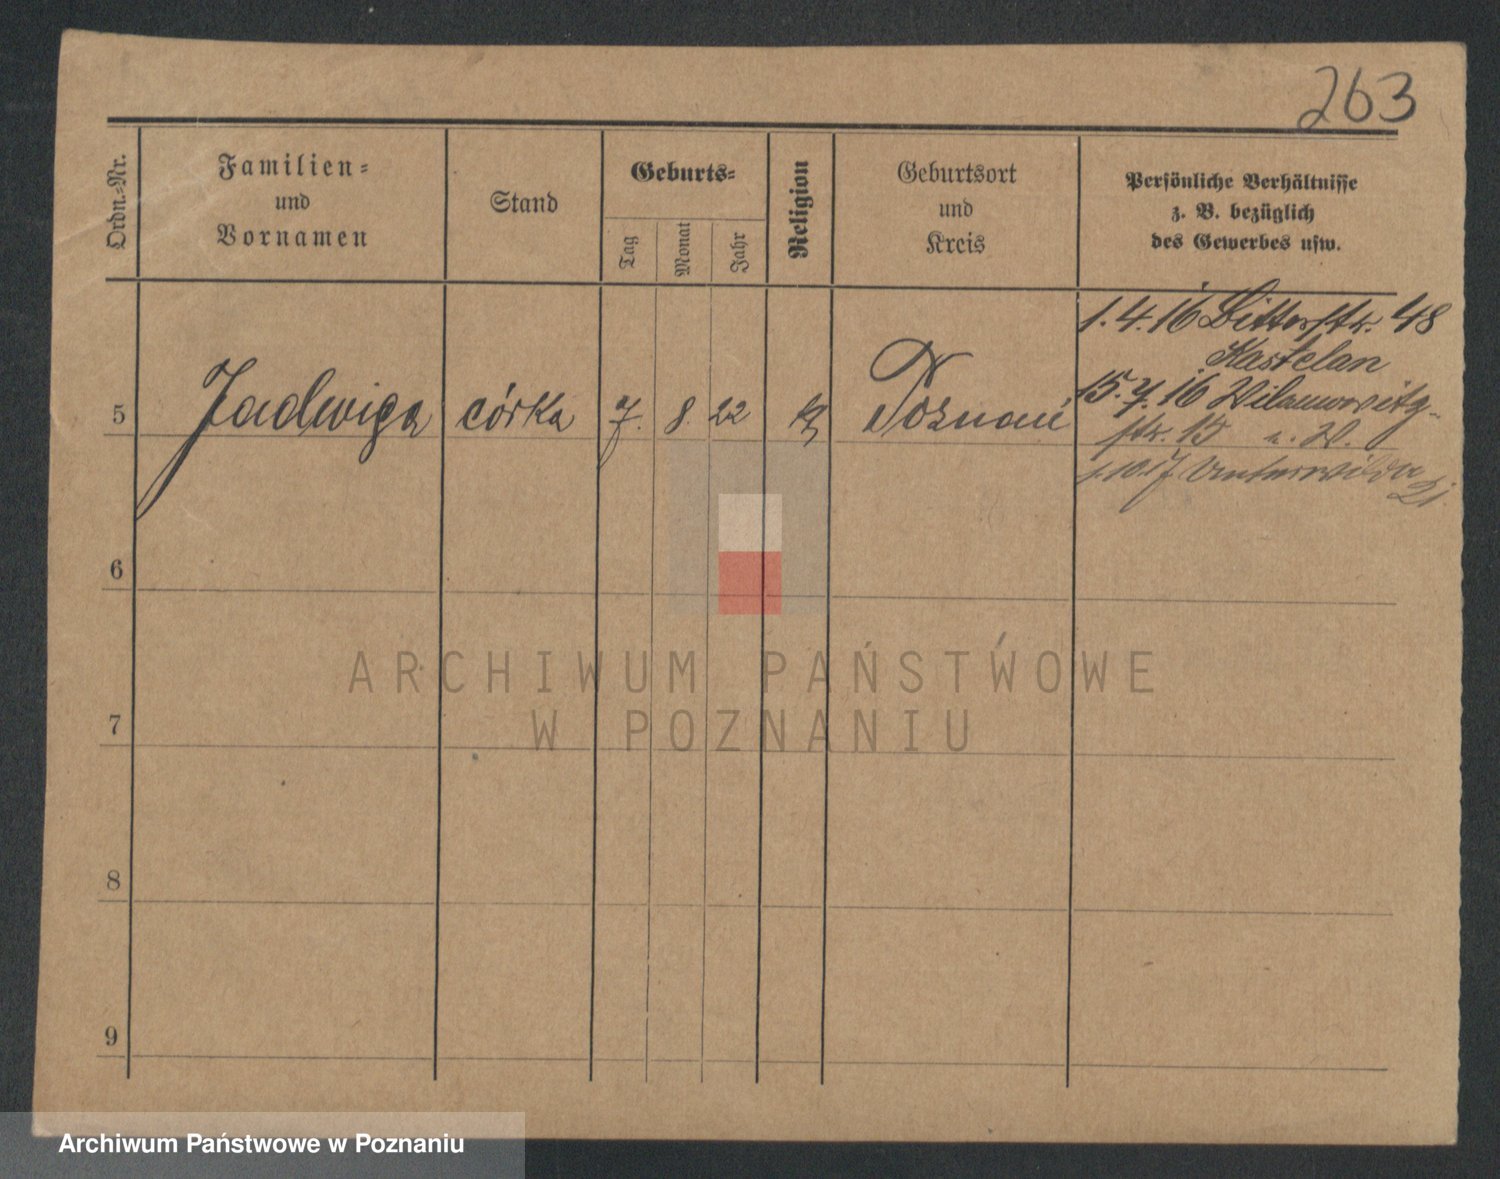 263
Ordn.-Nr.
Familien-
und
Vornamen
Stand
Geburts-
Tag
Monat
Jahr
Religion
Geburtsort
und
Kreis
Persönliche Verhältnisse
z. B. bezüglich
des Gewerbes usw.
1.4.16 Ritterstr. 48
Kastelan
5 Jadwiga córka 7. 8. 22 k Poznań
15.7.16 Wilamowitz-
str. 15
1.10.17 Unterwilda
21
6
7
8
9
ARCHIWUM PAŃSTWOWE
W POZNANIU
Archiwum Państwowe w Poznaniu